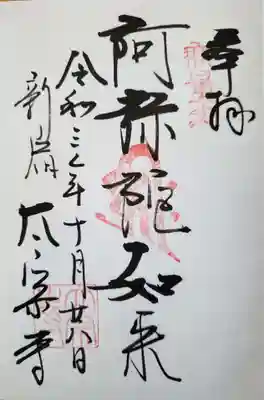 奉拝
阿弥陀如来
令和三年十月廿八日
新宿 太宗寺